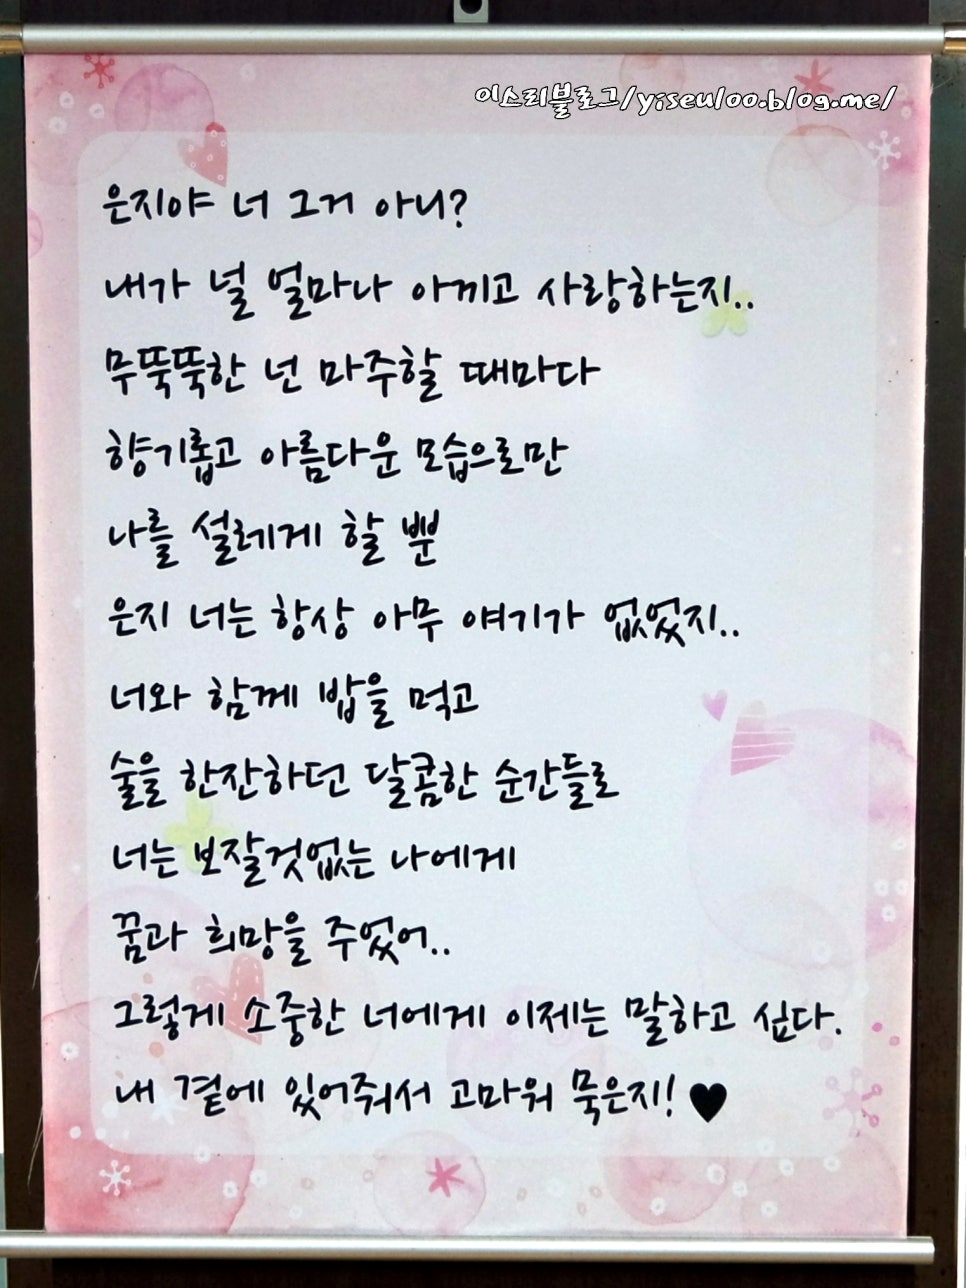 이스리블로그/yiseul00.blog.me/
은지야 너 그거 아니?
내가 널 얼마나 아끼고 사랑하는지..
무뚝뚝한 넌 마주할 때마다
향기롭고 아름다운 모습으로만
나를 설레게 할 뿐
은지 너는 항상 아무 얘기가 없었지..
너와 함께 밥을 먹고
술을 한잔하던 달콤한 순간들로
너는 보잘것없는 나에게
꿈과 희망을 주었어..
그렇게 소중한 너에게 이제는 말하고 싶다.
내 곁에 있어줘서 고마워 묵은지! ♥